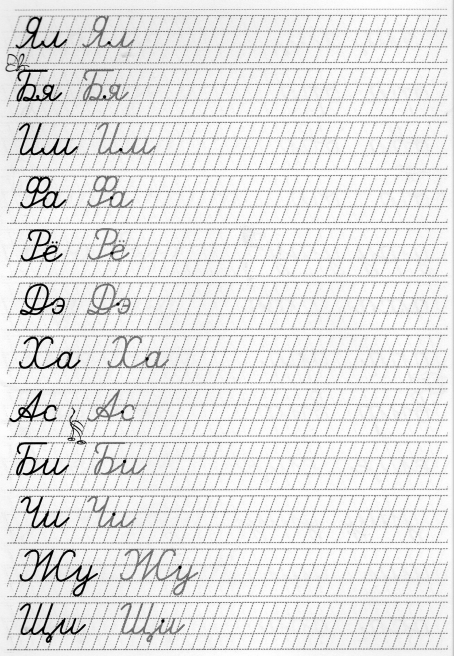 Ял Ял
Бя Бя
Им Им
Фа Фа
Рё Рё
Дэ Дэ
Ха Ха
Ас Ас
Би Би
Чи Чи
Жу Жу
Щи Щи